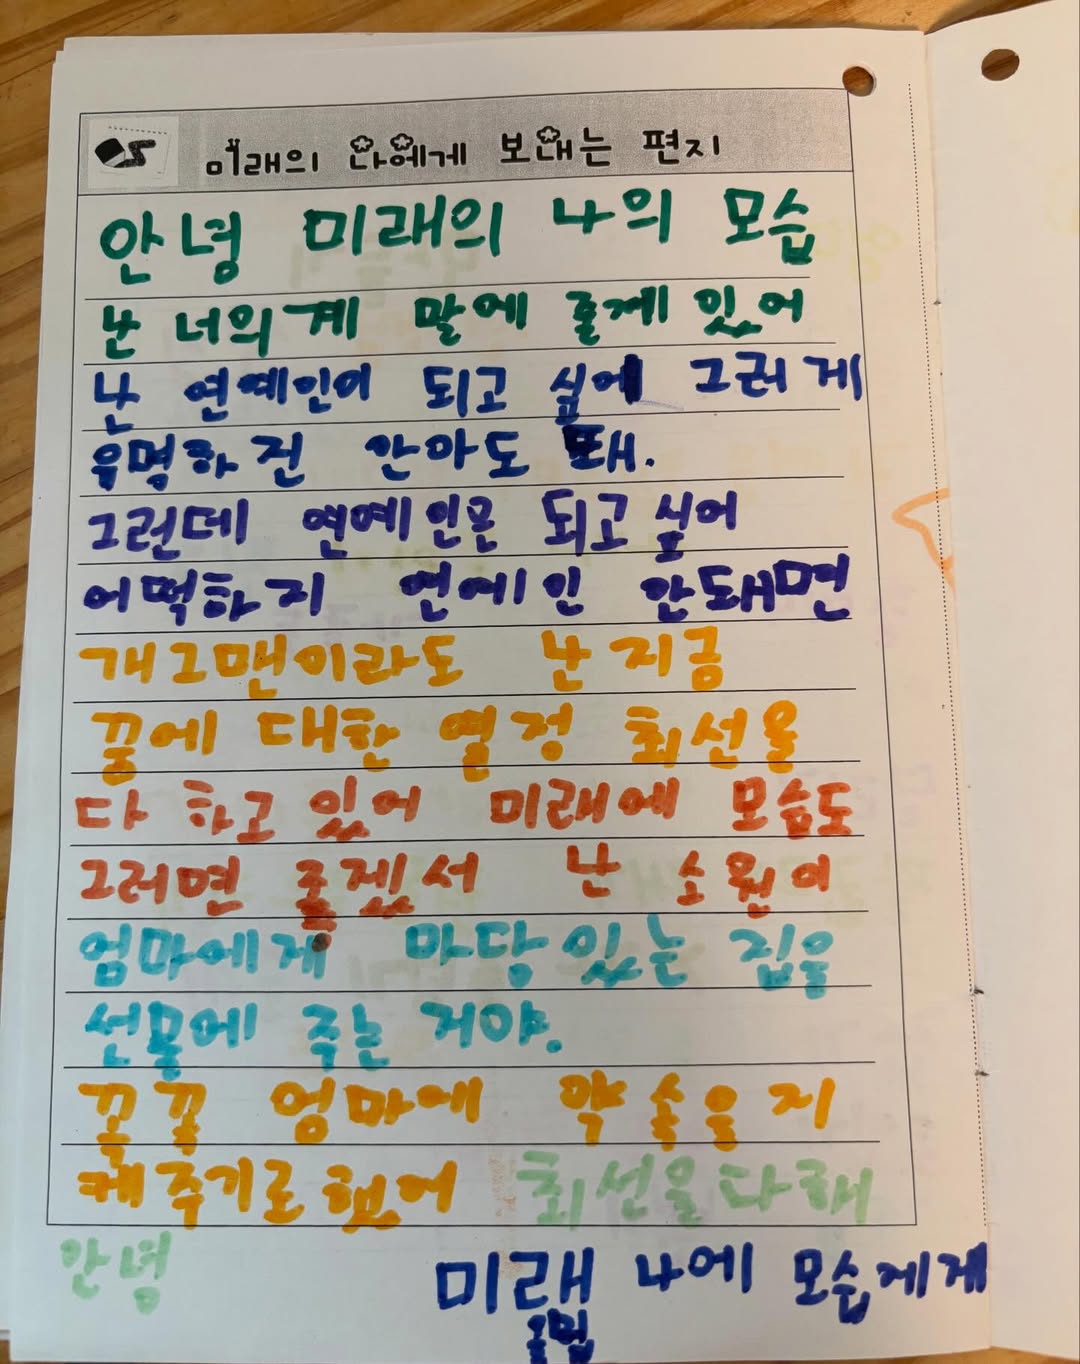 미래의 나에게 보내는 편지
안녕 미래의 나의 모습
난 너의계 말에 줄게 있어
난 연예인이 되고 싶에 그러게
유명하진 안아도 돼.
그런데 연예인은 되고싶어
어떡하지 연에인 안돼면
개그맨이라도 난지금
꿀에 대한 열정 최선을
다 하고 있어 미래에 모습도
그러면 좋겠서 난 소원이
엄마에게 마당있는 집을
선물에 주는 거야.
꼭꼭 엄마에 약속을지
켜주기로했어 최선을다해
안녕 미래 나에 모습게게